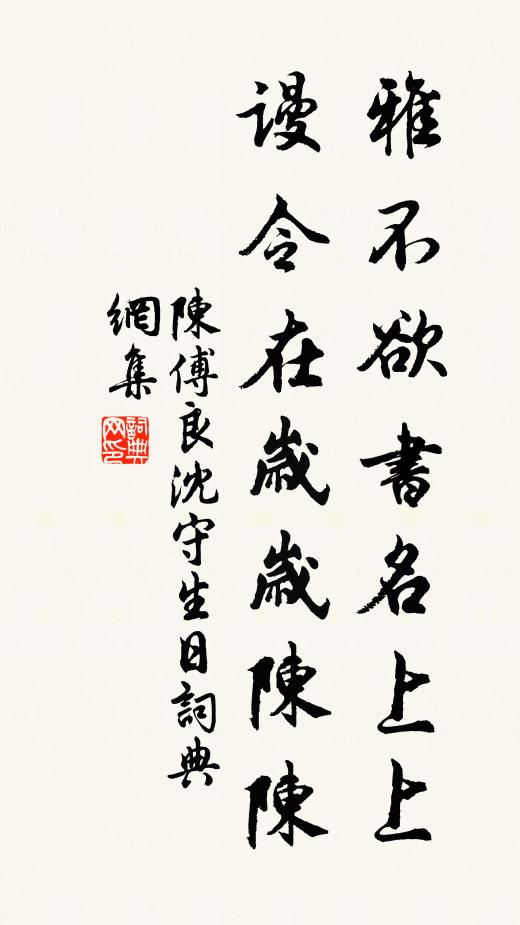 雅不欲書名上上
谩令在歲歲陳陳
陳傅良沈守生日詞典
網集
詞典网印